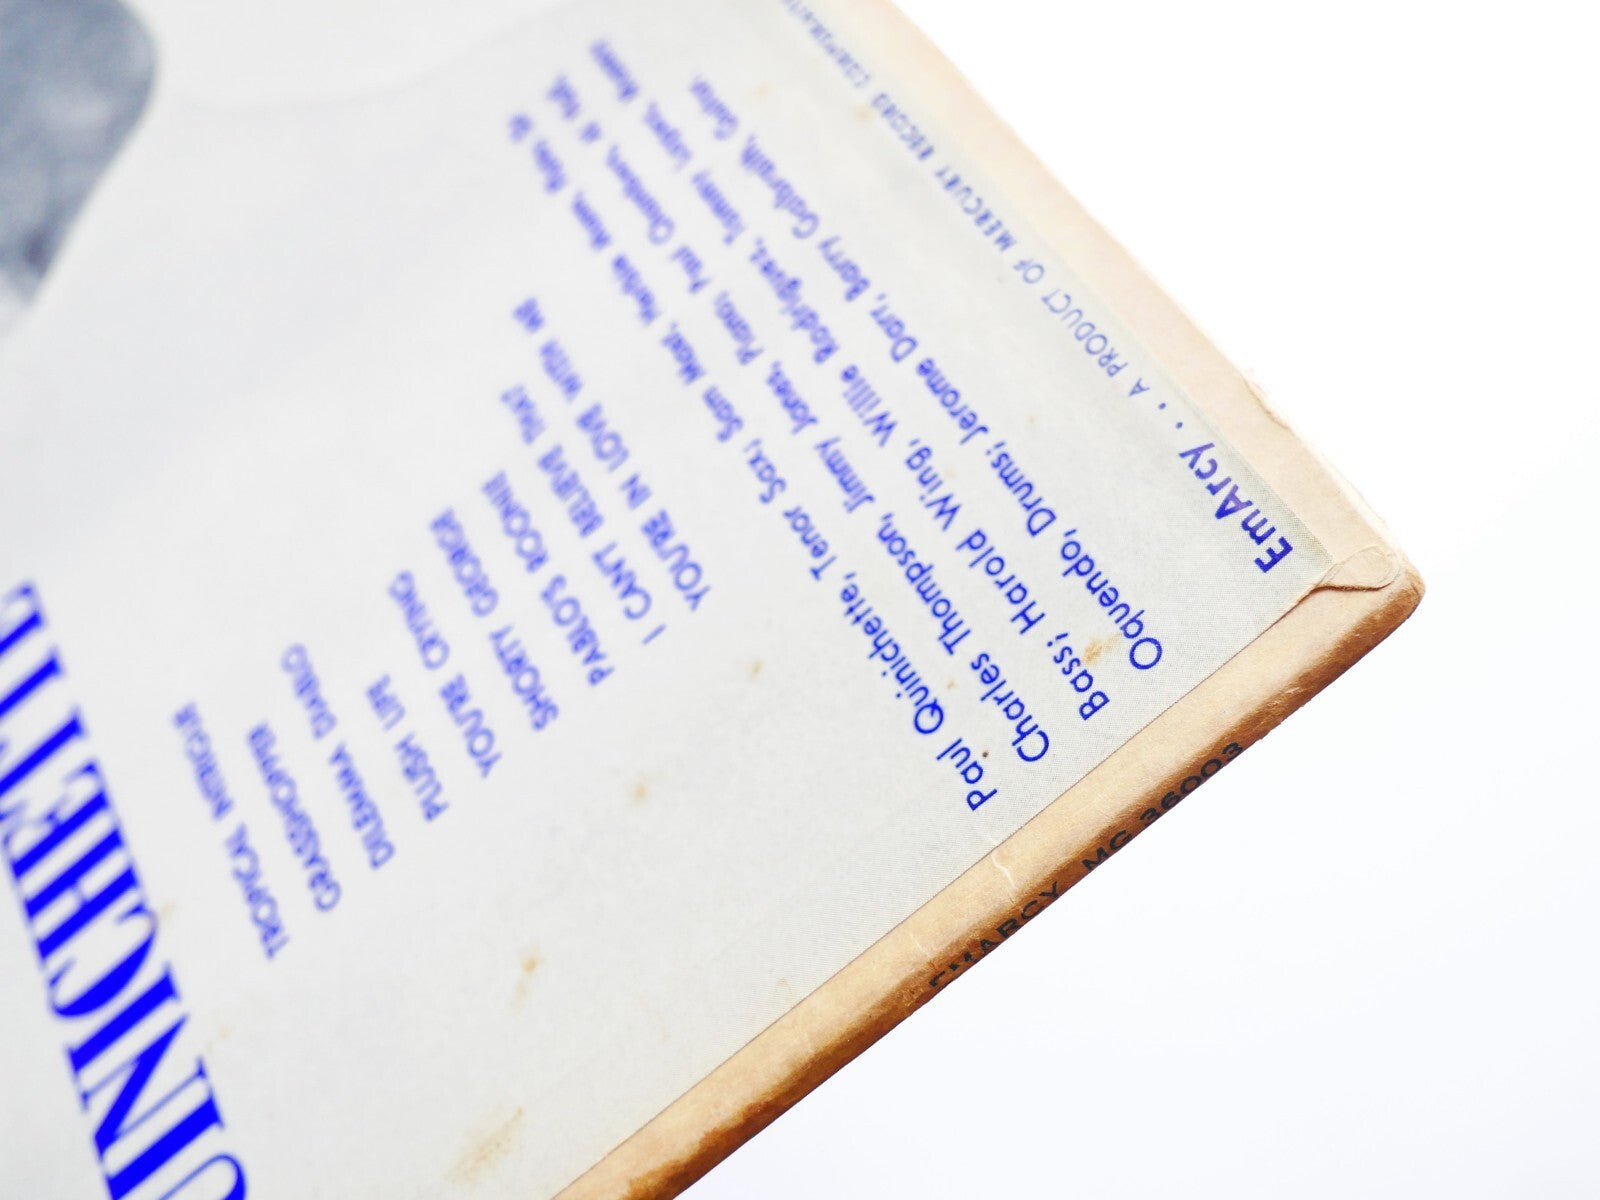 UINICHETTE
TROPICAL INTRIGUE
GRASSHOPPER
DILEMMA DIABLO
PLUSH LIFE
YOU'RE CRYING
SHORTY GEORGE
PABLO'S ROONIE
I CAN'T BELIEVE THAT
YOU'RE IN LOVE WITH ME
Paul Quinichette, Tenor Sax; Sam Most, Herbie Mann,
Charles Thompson, Jimmy Jones, Piano; Paul
Bass; Harold Wing, Willie Rodriguez, Tommy Lopez,
Oquendo, Drums; Jerome Darr, Barry Galbraith, Guitar.
EmArcy . . . A PRODUCT OF MERCURY RECORD CORPORATION
EMARCY MG 36003